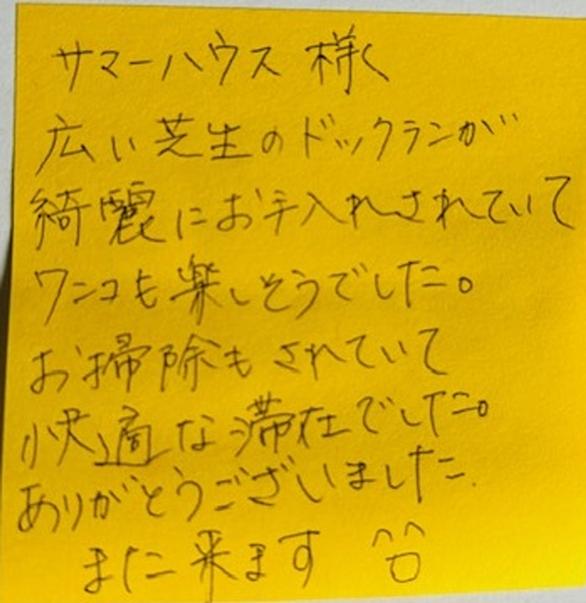 サマーハウス 様く
広い芝生のドックランが
綺麗にお手入れされていて
ワンコも楽しそうでした。
お掃除もされていて
快適な滞在でした。
ありがとうございました.
また来ます